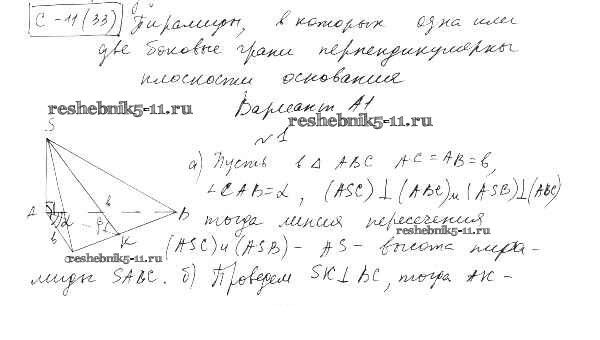 С-11(33) Пирамиды, в которых одна или
две боковые грани перпендикулярны
плоскости основания
reshebnik5-11.ru
Вариант А1
reshebnik5-11.ru
№1
S
а) Пусть в Δ ABC AC = AB = b,
∠CAB = α, (ASC) ⊥ (ABC) и (ASB) ⊥ (ABC)
A α b B
тогда линия пересечения
reshebnik5-11.ru
b β K
(ASC) и (ASB) - AS - высота пира-
C
reshebnik5-11.ru
миды SABC. б) Проведем SK ⊥ BC, тогда AK -